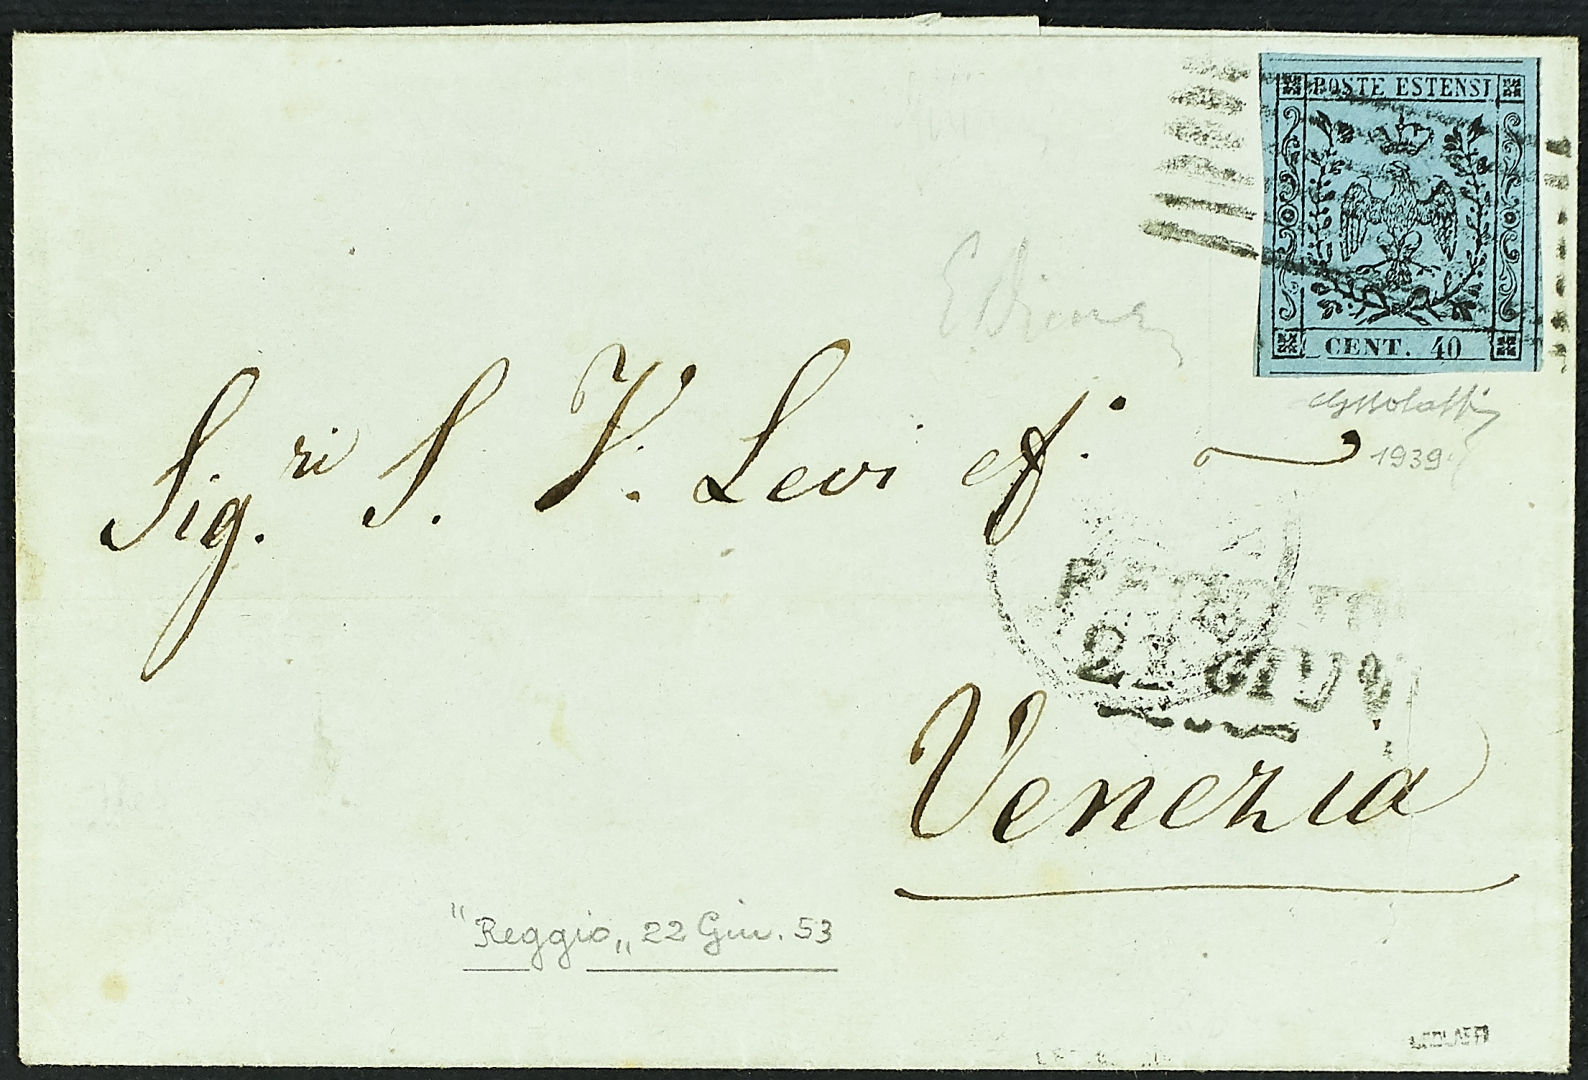 POSTE ESTENSI
CENT. 40
E. Diena
1939
Sig.ri S. V. Levi e f.i
22 GIU
Venezia
"Reggio" 22 Giu. 53